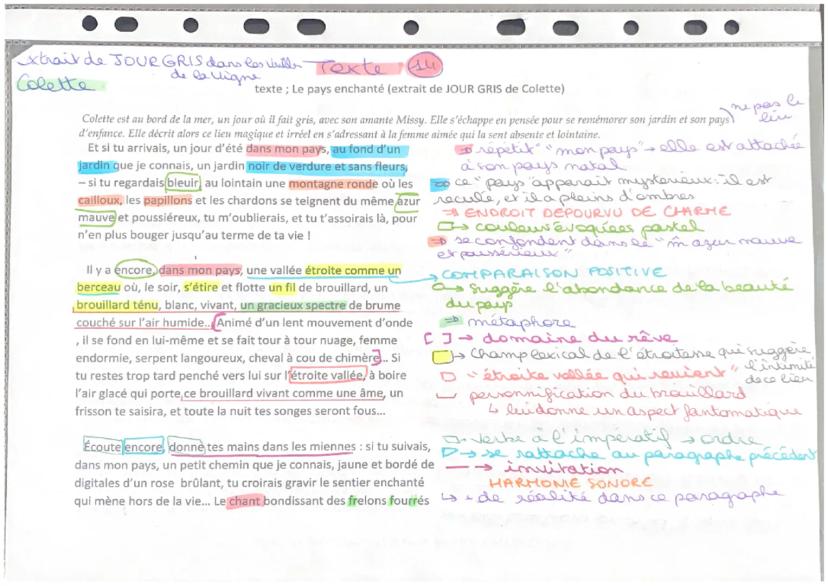 extrait de JOUR GRIS dans les vrilles Texte 14
de la vigne
Colette
texte ; Le pays enchanté (extrait de JOUR GRIS de Colette)
Colette est au bord de la mer, un jour où il fait gris, avec son amante Missy. Elle s'échappe en pensée pour se remémorer son jardin et son pays
d'enfance. Elle décrit alors ce lieu magique et irréel en s'adressant à la femme aimée qui la sent absente et lointaine.
ne pas le
lire
Et si tu arrivais, un jour d'été dans mon pays, au fond d'un
jardin que je connais, un jardin noir de verdure et sans fleurs,
– si tu regardais bleuir, au lointain une montagne ronde où les
cailloux, les papillons et les chardons se teignent du même azur
mauve et poussiéreux, tu m'oublierais, et tu t'assoirais là, pour
n'en plus bouger jusqu'au terme de ta vie !
⇒ répétit° "mon pays" → elle est attachée
à son pays natal
⇒ ce "pays" apparait mystérieux : il est
reculé, et il a pleins d'ombres
⇒ ENDROIT DEPOURVU DE CHARME
→ couleurs évoquées pastel
⇒ se confondent dans le "m̂ azur mauve
et poussiéreux"
Il y a encore, dans mon pays, une vallée étroite comme un
berceau où, le soir, s'étire et flotte un fil de brouillard, un
brouillard ténu, blanc, vivant, un gracieux spectre de brume
couché sur l'air humide... [Animé d'un lent mouvement d'onde
, il se fond en lui-même et se fait tour à tour nuage, femme
endormie, serpent langoureux, cheval à cou de chimère]... Si
tu restes trop tard penché vers lui sur l'étroite vallée, à boire
l'air glacé qui porte ce brouillard vivant comme une âme, un
frisson te saisira, et toute la nuit tes songes seront fous...
→ COMPARAISON POSITIVE
→ suggère l'abondance de la beauté
du pays
⇒ métaphore
[ ] → domaine du rêve
→ Champ lexical de l'étroitesse qui suggère
l'intimité
de ce lieu
"étroite vallée qui revient"
personnification du brouillard
↳ lui donne un aspect fantomatique
Écoute encore, donne tes mains dans les miennes : si tu suivais,
dans mon pays, un petit chemin que je connais, jaune et bordé de
digitales d'un rose brûlant, tu croirais gravir le sentier enchanté
qui mène hors de la vie... Le chant bondissant des frelons fourrés
→ verbe à l'impératif → ordre
→ se rattache au paragraphe précédent
→ invitation
HARMONIE SONORE
↳ + de réalité dans ce paragraphe